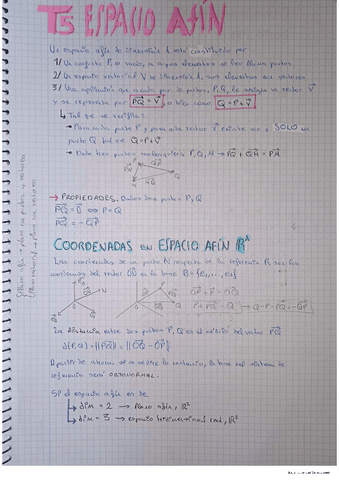 T5 ESPACIO AFÍN
Un espacio afín de dimensión n está constituido por
1/ Un conjunto P, no vacío, a cuyos elementos se les llama puntos
2/ Un espacio vectorial V de dimensión n, cuyos elementos son vectores
3/ Una aplicación que a cada par de puntos, P, Q, le asigna un vector v⃗
y se representa por PQ⃗ = v⃗ o bien como Q = P + v⃗
↳ Tal que se verifica:
• Para cada punto P y para cada vector v⃗ existe un y SOLO un
punto Q tal que Q = P + v⃗
• Dados tres puntos cualesquiera P, Q, M → PQ⃗ + QM⃗ = PM⃗
→ PROPIEDADES. Dados dos puntos P, Q
PQ⃗ = 0⃗ ⇔ P = Q
PQ⃗ = -QP⃗
COORDENADAS EN ESPACIO AFÍN
Las coordenadas de un punto N respecto de la referencia R son las
coordenadas del vector en la base B = {e₁, ..., eₙ}
La distancia entre dos puntos P, Q es el módulo del vector PQ⃗
d(P, Q) = ||PQ⃗|| = ||OQ⃗ - OP⃗||
A partir de ahora, la base del sistema de
referencia será ORTONORMAL.
Si el espacio afín es de
↳ dim = 2 → plano afín, R²
↳ dim = 3 → espacio tridimensional real, R³